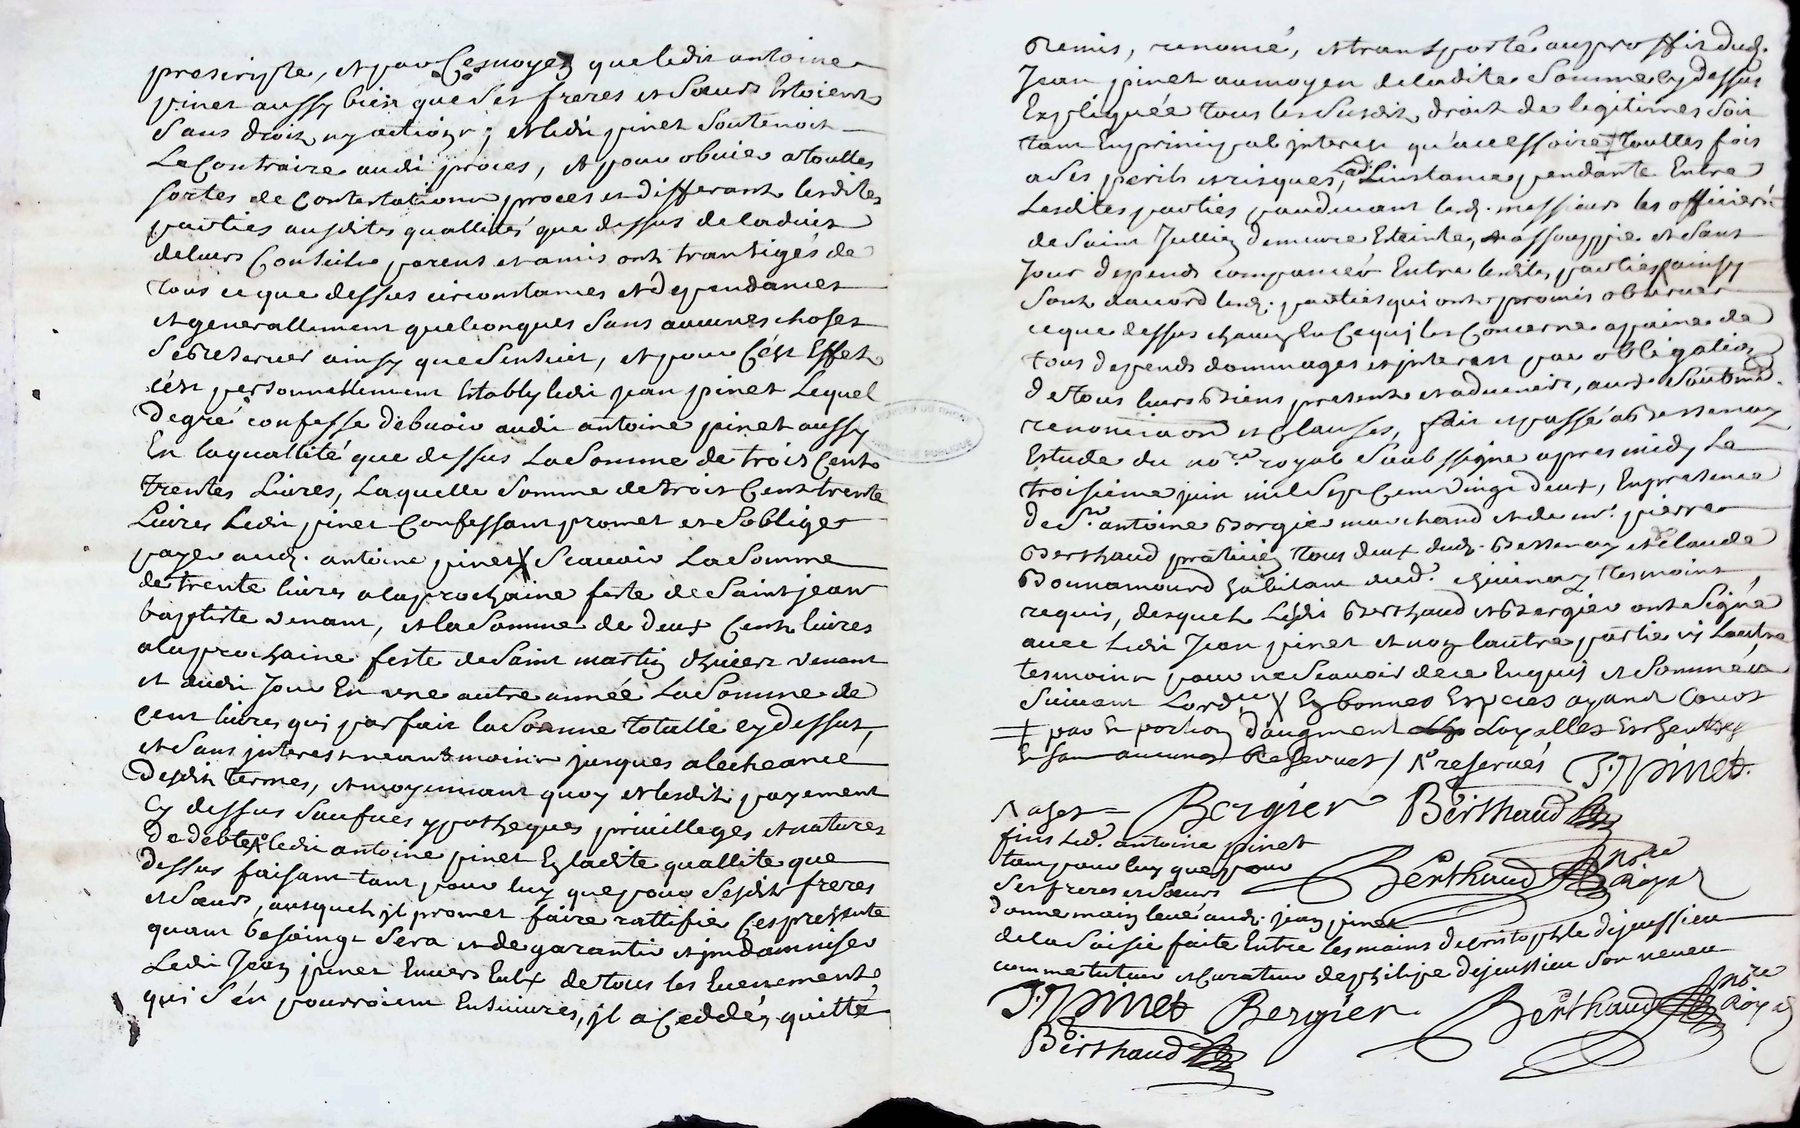 prescripte, et par Ces moyens que ledit antoine
pinet aussy bien que Ses freres et Sœurs Estoient
Sans droit ny action ; et ledit pinet Soutenoit
Le Contraire audit proces, et pour obvier a touttes
sortes de Contestations proces et differant lesdites
parties ausdites quallités que dessus de ladvis
de leurs Conseils parens et amis ont transigés de
tous ce que dessus circonstances et dependances
et generallement quelconques Sans aucunes choses
Se Reserver ainsy que Sensuit, et pour Cést Effet
cést personnellement Estably ledit jean pinet Lequel
de gré confesse debvoir audit antoine pinet aussy
En laquallité que dessus La Somme de trois Cents
trentes Livres, Laquelle Somme de trois Cent trente
Livres Ledit pinet Confessant promet et Soblige
payer aud. antoine pinet Scavoir La Somme
de trente livres a la prochaine feste de Saint jean
baptiste venant, et la Somme de deux Cents livres
a la prochaine feste de Saint martin d'hiver venant
et audit Jour En une autre année La Somme de
Cent livres qui parfait la Somme totalle cy dessus,
et Sans jnterest neantmoins jusques a lecheance
desdits termes, et moyennant quoy et lesdits payement
Cy dessus Saufues ypotheques privilleges et natures
de debtes ledit antoine pinet En ladite quallité que
dessus faisant tant pour luy que pour Sesdits freres
et Sœurs, ausquels jl promet faire rattifier Ces presente
quant besoingt Sera et de garantir et jndamniser
Ledit Jean pinet Envers Eulx de tous les Evenements
qui S'én pourroient Ensuivres, jl a Ceddés, quitté
Remis, renoncé, et transporté au proffit dud.
Jean pinet au moyen de ladite Somme cy dessus
Expliquée tous les Susdits droit de legitimes Soit
tant En principal jnterest qu'accessoire ‡ touttes fois
a Ses perils et risques, Lad. Linstance pendante Entre
Lesdites parties pardevant lesd. messieurs les officiers
de Saint Jullien demeure Eteinte, assouppie et Sans
Jour depends compancés Entre lesdites parties, ainsy
Sont daccord lesd. parties qui ont promis observer
ce que dessus chacun En Ce qui les Concerne a paine de
tous depends dommages et jnterest par obligation
de tous leurs Biens presents et advenirs, avec Soubmis.
renonciaon et Clauses, fait et passé a Bessenay
Estude du no.re royal Soubssigné apres midy Le
troisieme juin mil Sept Cent vingt deux, En presence
de S.r antoine Bergier marchand et de m.e pierre
Berthaud praticien tous deux dud. Bessenay et claude
Bonnamourd habitant dud. chivinay tesmoins
requis, desquels Ledit Berthaud et Bergier ont Signé
avec Ledit Jean pinet et non lautre partie ny Lautre
tesmoins pour ne Scavoir de ce Enquis et Sommés
Suivant Lord.ce X En bonnes Especes ayant Cours
‡ par En portion d'augment Loyalles Escheuttes
et Sans aucunes Reserves / reservés J. Pinet.
Bergier Berthaud
fins Led. antoine pinet
tant pour luy que pour
Ses freres et Sœurs
Berthaud no.re Royal
donne main levée aud. jean pinet
de la Saisie faite Entre les mains de cristophle dejussieu
comme tuteur et curateur de philipe dejussieu Son neveu
J. Pinet Bergier Berthaud no.re Royal
Berthaud